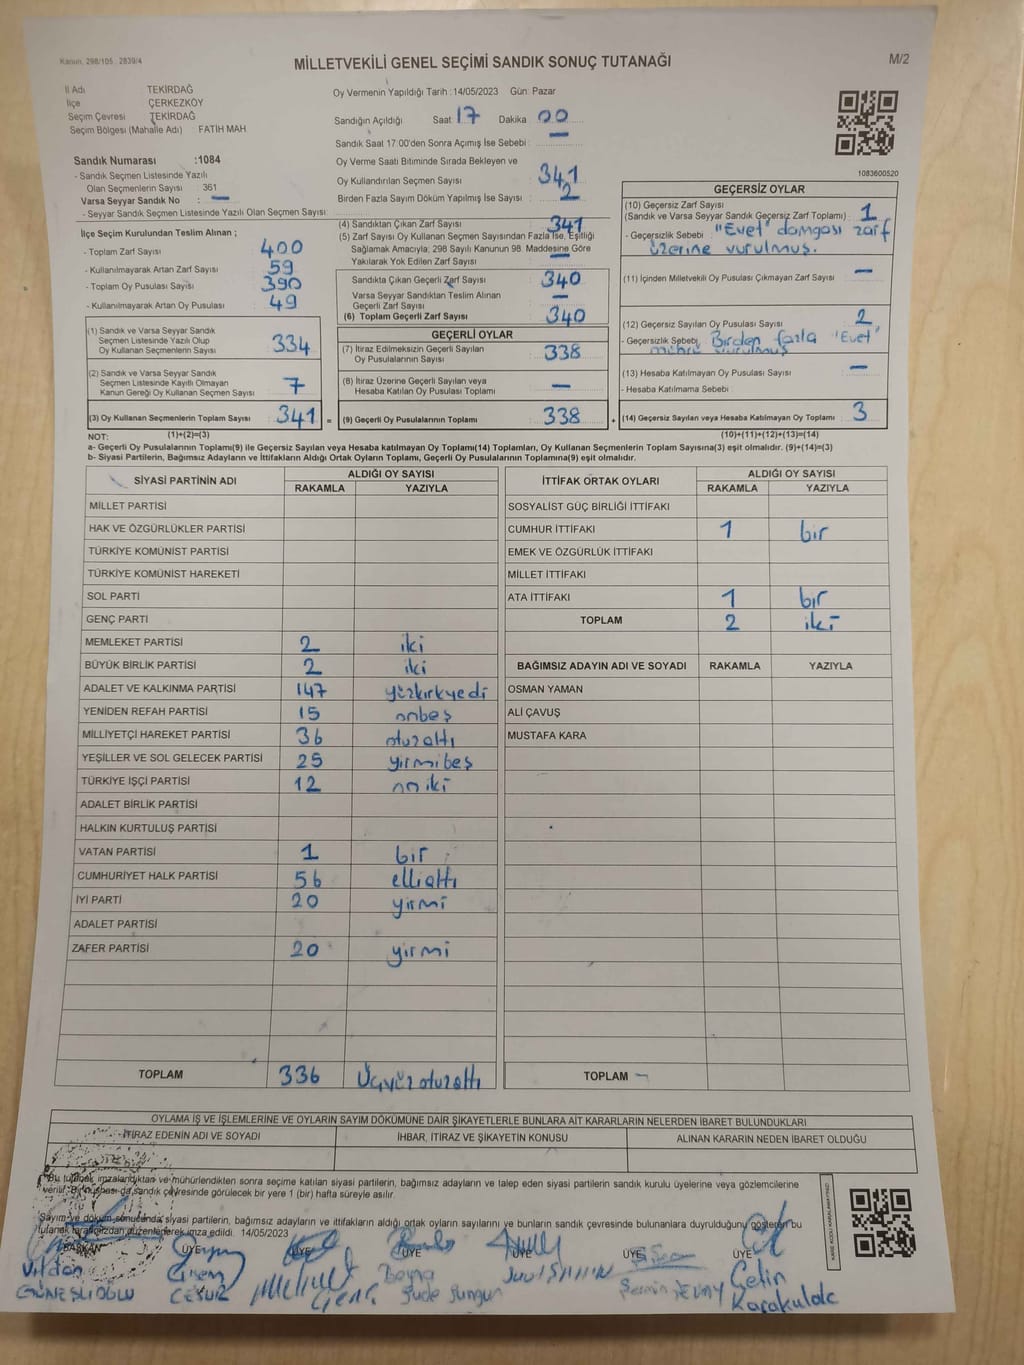 Kanun, 298/105 , 2839/4
MİLLETVEKİLİ GENEL SEÇİMİ SANDIK SONUÇ TUTANAĞI
M/2
İl Adı TEKİRDAĞ
İlçe ÇERKEZKÖY
Seçim Çevresi TEKİRDAĞ
Seçim Bölgesi (Mahalle Adı) FATİH MAH.
Sandık Numarası :1084
- Sandık Seçmen Listesinde Yazılı
Olan Seçmenlerin Sayısı 361
Varsa Seyyar Sandık No : —
- Seyyar Sandık Seçmen Listesinde Yazılı Olan Seçmen Sayısı
İlçe Seçim Kurulundan Teslim Alınan ;
- Toplam Zarf Sayısı 400
- Kullanılmayarak Artan Zarf Sayısı 59
- Toplam Oy Pusulası Sayısı 390
- Kullanılmayarak Artan Oy Pusulası 49
(1) Sandık ve Varsa Seyyar Sandık
Seçmen Listesinde Yazılı Olup
Oy Kullanan Seçmenlerin Sayısı 334
(2) Sandık ve Varsa Seyyar Sandık
Seçmen Listesinde Kayıtlı Olmayan
Kanun Gereği Oy Kullanan Seçmen Sayısı 7
(3) Oy Kullanan Seçmenlerin Toplam Sayısı 341 =
(1)+(2)=(3)
Oy Vermenin Yapıldığı Tarih :14/05/2023 Gün: Pazar
Sandığın Açıldığı Saat 17 Dakika 00
Sandık Saat 17:00'den Sonra Açımış İse Sebebi : —
Oy Verme Saati Bitiminde Sırada Bekleyen ve
Oy Kullandırılan Seçmen Sayısı 341
Birden Fazla Sayım Döküm Yapılmış İse Sayısı 2
(4) Sandıktan Çıkan Zarf Sayısı 341
(5) Zarf Sayısı Oy Kullanan Seçmen Sayısından Fazla İse, Eşitliği
Sağlamak Amacıyla; 298 Sayılı Kanunun 98. Maddesine Göre
Yakılarak Yok Edilen Zarf Sayısı —
Sandıkta Çıkan Geçerli Zarf Sayısı 340
Varsa Seyyar Sandıktan Teslim Alınan
Geçerli Zarf Sayısı —
(6) Toplam Geçerli Zarf Sayısı 340
GEÇERLİ OYLAR
(7) İtiraz Edilmeksizin Geçerli Sayılan
Oy Pusulalarının Sayısı 338
(8) İtiraz Üzerine Geçerli Sayılan veya
Hesaba Katılan Oy Pusulaları Toplamı —
(9) Geçerli Oy Pusulalarının Toplamı 338 +
1083600520
GEÇERSİZ OYLAR
(10) Geçersiz Zarf Sayısı
(Sandık ve Varsa Seyyar Sandık Geçersiz Zarf Toplamı) : 1
- Geçersizlik Sebebi : "Evet" damgası zarf
üzerine vurulmuş.
(11) İçinden Milletvekili Oy Pusulası Çıkmayan Zarf Sayısı —
(12) Geçersiz Sayılan Oy Pusulası Sayısı 2
- Geçersizlik Sebebi Birden fazla "Evet"
mührü vurulmuş
(13) Hesaba Katılmayan Oy Pusulası Sayısı —
- Hesaba Katılmama Sebebi :
(14) Geçersiz Sayılan veya Hesaba Katılmayan Oy Pusulası Toplamı 3
(10)+(11)+(12)+(13)=(14)
NOT:
a- Geçerli Oy Pusulalarının Toplamı(9) ile Geçersiz Sayılan veya Hesaba katılmayan Oy Toplamı(14) Toplamları, Oy Kullanan Seçmenlerin Toplam Sayısına(3) eşit olmalıdır. (9)+(14)=(3)
b- Siyasi Partilerin, Bağımsız Adayların ve İttifakların Aldığı Ortak Oyların Toplamı, Geçerli Oy Pusulalarının Toplamına(9) eşit olmalıdır.
SİYASİ PARTİNİN ADI ALDIĞI OY SAYISI
RAKAMLA YAZIYLA
MİLLET PARTİSİ
HAK VE ÖZGÜRLÜKLER PARTİSİ
TÜRKİYE KOMÜNİST PARTİSİ
TÜRKİYE KOMÜNİST HAREKETİ
SOL PARTİ
GENÇ PARTİ
MEMLEKET PARTİSİ 2 iki
BÜYÜK BİRLİK PARTİSİ 2 iki
ADALET VE KALKINMA PARTİSİ 147 yüzkırkyedi
YENİDEN REFAH PARTİSİ 15 onbeş
MİLLİYETÇİ HAREKET PARTİSİ 36 otuzaltı
YEŞİLLER VE SOL GELECEK PARTİSİ 25 yirmibeş
TÜRKİYE İŞÇİ PARTİSİ 12 oniki
ADALET BİRLİK PARTİSİ
HALKIN KURTULUŞ PARTİSİ
VATAN PARTİSİ 1 bir
CUMHURİYET HALK PARTİSİ 56 ellialtı
İYİ PARTİ 20 yirmi
ADALET PARTİSİ
ZAFER PARTİSİ 20 yirmi
TOPLAM 336 Üçyüzotuzaltı
İTTİFAK ORTAK OYLARI ALDIĞI OY SAYISI
RAKAMLA YAZIYLA
SOSYALİST GÜÇ BİRLİĞİ İTTİFAKI
CUMHUR İTTİFAKI 1 bir
EMEK VE ÖZGÜRLÜK İTTİFAKI
MİLLET İTTİFAKI
ATA İTTİFAKI 1 bir
TOPLAM 2 iki
BAĞIMSIZ ADAYIN ADI VE SOYADI RAKAMLA YAZIYLA
OSMAN YAMAN
ALİ ÇAVUŞ
MUSTAFA KARA
TOPLAM —
OYLAMA İŞ VE İŞLEMLERİNE VE OYLARIN SAYIM DÖKÜMÜNE DAİR ŞİKAYETLERLE BUNLARA AİT KARARLARIN NELERDEN İBARET BULUNDUKLARI
İTİRAZ EDENİN ADI VE SOYADI İHBAR, İTİRAZ VE ŞİKAYETİN KONUSU ALINAN KARARIN NEDEN İBARET OLDUĞU
Bu tutanak imzalandıktan ve mühürlendikten sonra seçime katılan siyasi partilerin, bağımsız adayların ve talep eden siyasi partilerin sandık kurulu üyelerine veya gözlemcilerine
verilir. Bir nüshası da sandık çevresinde görülecek bir yere 1 (bir) hafta süreyle asılır.
Sayım ve döküm sonucunda siyasi partilerin, bağımsız adayların ve ittifakların aldığı ortak oyların sayılarını ve bunların sandık çevresinde bulunanlara duyrulduğunu gösteren bu
tutanak tarafımızdan düzenlenerek imza edildi. 14/05/2023
BAŞKAN ÜYE ÜYE ÜYE ÜYE ÜYE ÜYE
Vildan GÜNEŞLİOĞLU
CESUR
Beyna Sude
Şermin
Çetin Karakulak